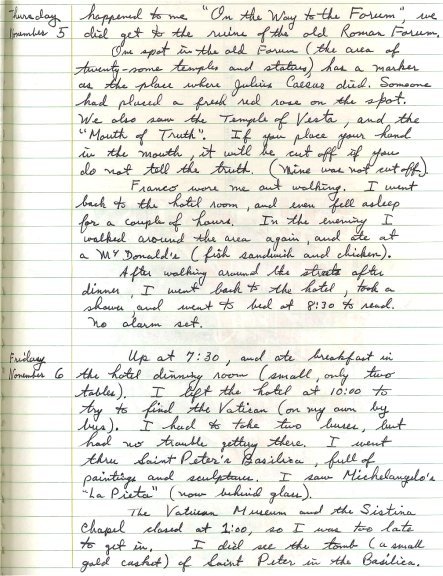 Thursday happened to me "On the Way to the Forum", we
November 5 did get to the ruins of the old Roman Forum.
One spot in the old Forum (the area of
twenty-some temples and statues) has a marker
as the place where Julius Caesar died. Someone
had placed a fresh red rose on the spot.
We also saw the Temple of Vesta, and the
"Mouth of Truth". If you place your hand
in the mouth, it will be cut off if you
do not tell the truth. (Mine was not cut off).
Franco wore me out walking. I went
back to the hotel room, and even fell asleep
for a couple of hours. In the evening I
walked around the area again, and ate at
a McDonald's (fish sandwich and chicken).
After walking around the streets after
dinner, I went back to the hotel, took a
shower and went to bed at 8:30 to read.
No alarm set.
Friday Up at 7:30, and ate breakfast in
November 6 the hotel dinning room (small, only two
tables). I left the hotel at 10:00 to
try to find the Vatican (on my own by
bus). I had to take two buses, but
had no trouble getting there. I went
thru Saint Peter's Basilica, full of
paintings and sculpture. I saw Michelangelo's
"La Pieta" (now behind glass).
The Vatican Museum and the Sistina
Chapel closed at 1:00, so I was too late
to get in. I did see the tomb (a small
gold casket) of Saint Peter in the Basilica.